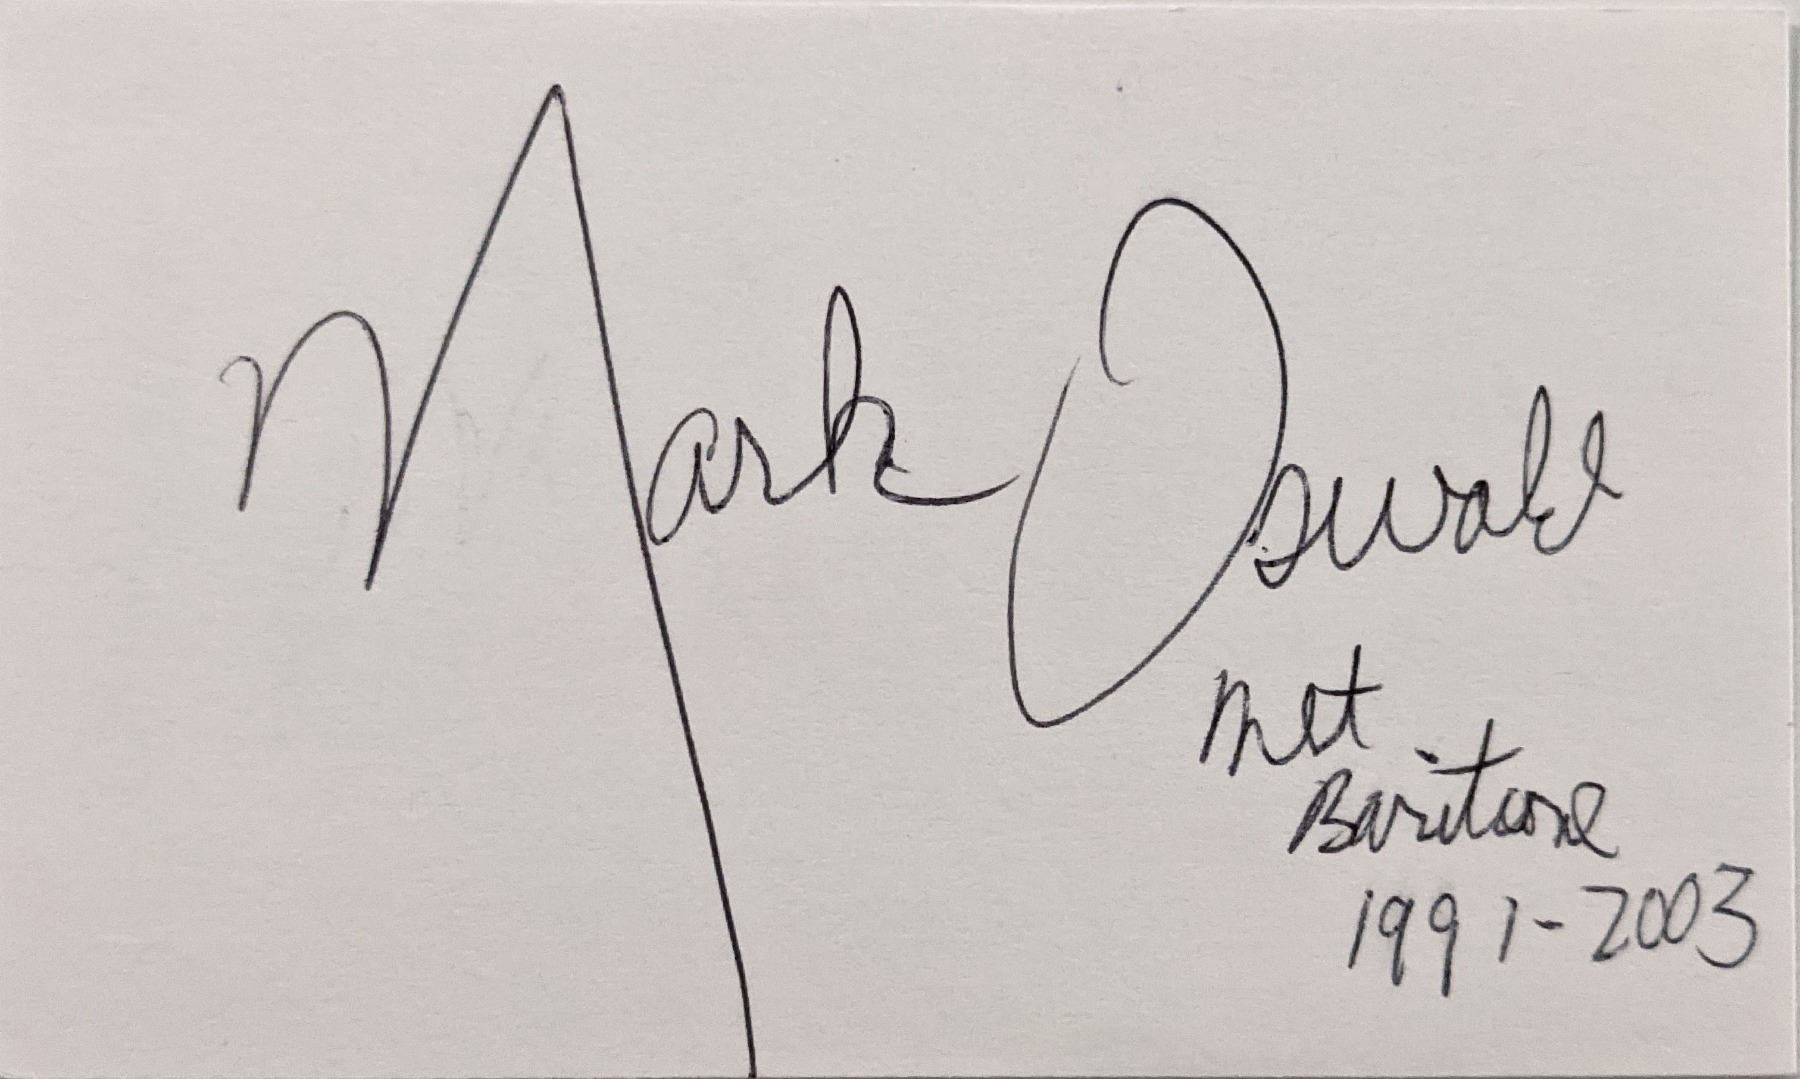 Mark Oswald
Met
Baritone
1991-2003